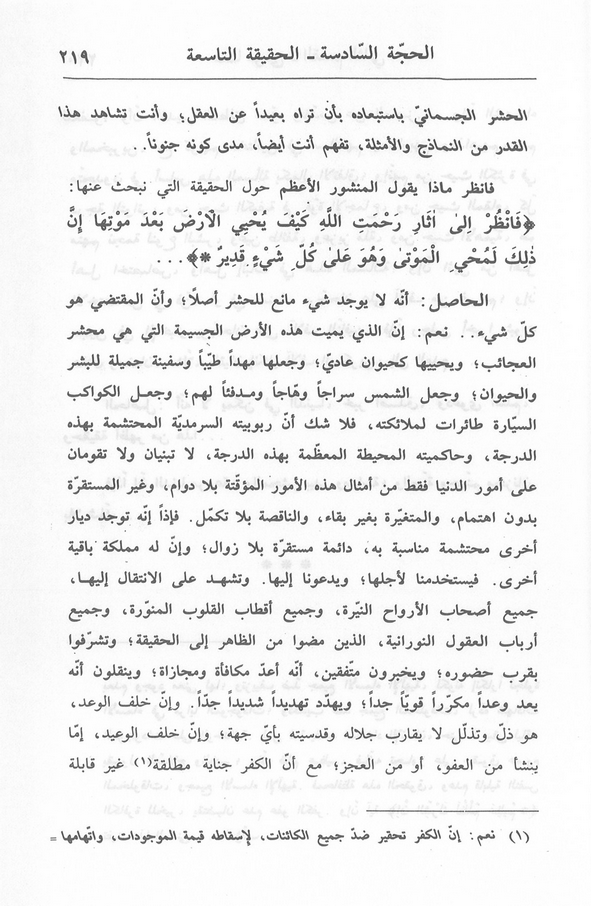 الحجّة السّادسة ـ الحقيقة التاسعة ٢١٩
الحشر الجسمانيّ باستبعاده بأن تراه بعيداً عن العقل؛ وأنت تشاهد هذا
القدر من النماذج والأمثلة، تفهم أنت أيضاً، مدى كونه جنوناً..
فانظر ماذا يقول المنشور الأعظم حول الحقيقة التي نبحث عنها:
﴿فَانْظُرْ اِلىٰ اٰثَارِ رَحْمَتِ اللّٰهِ كَيْفَ يُحْيِي الْاَرْضَ بَعْدَ مَوْتِهَا اِنَّ
ذٰلِكَ لَمُحْيِ الْمَوْتىٰ وَهُوَ عَلىٰ كُلِّ شَيْءٍ قَدِيرٌ *﴾...
الحاصل: أنّه لا يوجد شيء مانع للحشر أصلًا؛ وأنّ المقتضي هو
كلّ شيء.. نعم: إنّ الذي يميت هذه الأرض الجسيمة التي هي محشر
العجائب؛ ويحييها كحيوان عاديّ؛ وجعلها مهداً طيّباً وسفينة جميلة للبشر
والحيوان؛ وجعل الشمس سراجاً وهّاجاً ومدفئاً لهم؛ وجعل الكواكب
السيّارة طائرات لملائكته، فلا شك أنّ ربوبيته السرمديّة المحتشمة بهذه
الدرجة، وحاكميته المحيطة المعظّمة بهذه الدرجة، لا تبنيان ولا تقومان
على أمور الدنيا فقط من أمثال هذه الأمور المؤقّتة بلا دوام، وغير المستقرّة
بدون اهتمام، والمتغيّرة بغير بقاء، والناقصة بلا تكمّل. فإذاً إنّه توجد ديار
أخرى محتشمة مناسبة به، دائمة مستقرّة بلا زوال؛ وإنّ له مملكة باقية
أخرى. فيستخدمنا لأجلها؛ ويدعونا إليها. وتشهد على الانتقال إليها،
جميع أصحاب الأرواح النيّرة، وجميع أقطاب القلوب المنوّرة، وجميع
أرباب العقول النورانية، الذين مضوا من الظاهر إلى الحقيقة؛ وتشرّفوا
بقرب حضوره؛ ويخبرون متّفقين، أنّه أعدّ مكافأة ومجازاة؛ وينقلون أنّه
يعد وعداً مكرّراً قويّاً جداً؛ ويهدّد تهديداً شديداً جدّاً. وإنّ خلف الوعد،
هو ذلّ وتذلّل لا يقارب جلاله وقدسيته بأيّ جهة؛ وإنّ خلف الوعيد، إمّا
ينشأ من العفو، أو من العجز؛ مع أنّ الكفر جناية مطلقة(١) غير قابلة
(١) نعم: إنّ الكفر تحقير ضدّ جميع الكائنات، لإسقاطه قيمة الموجودات، واتّهامها =